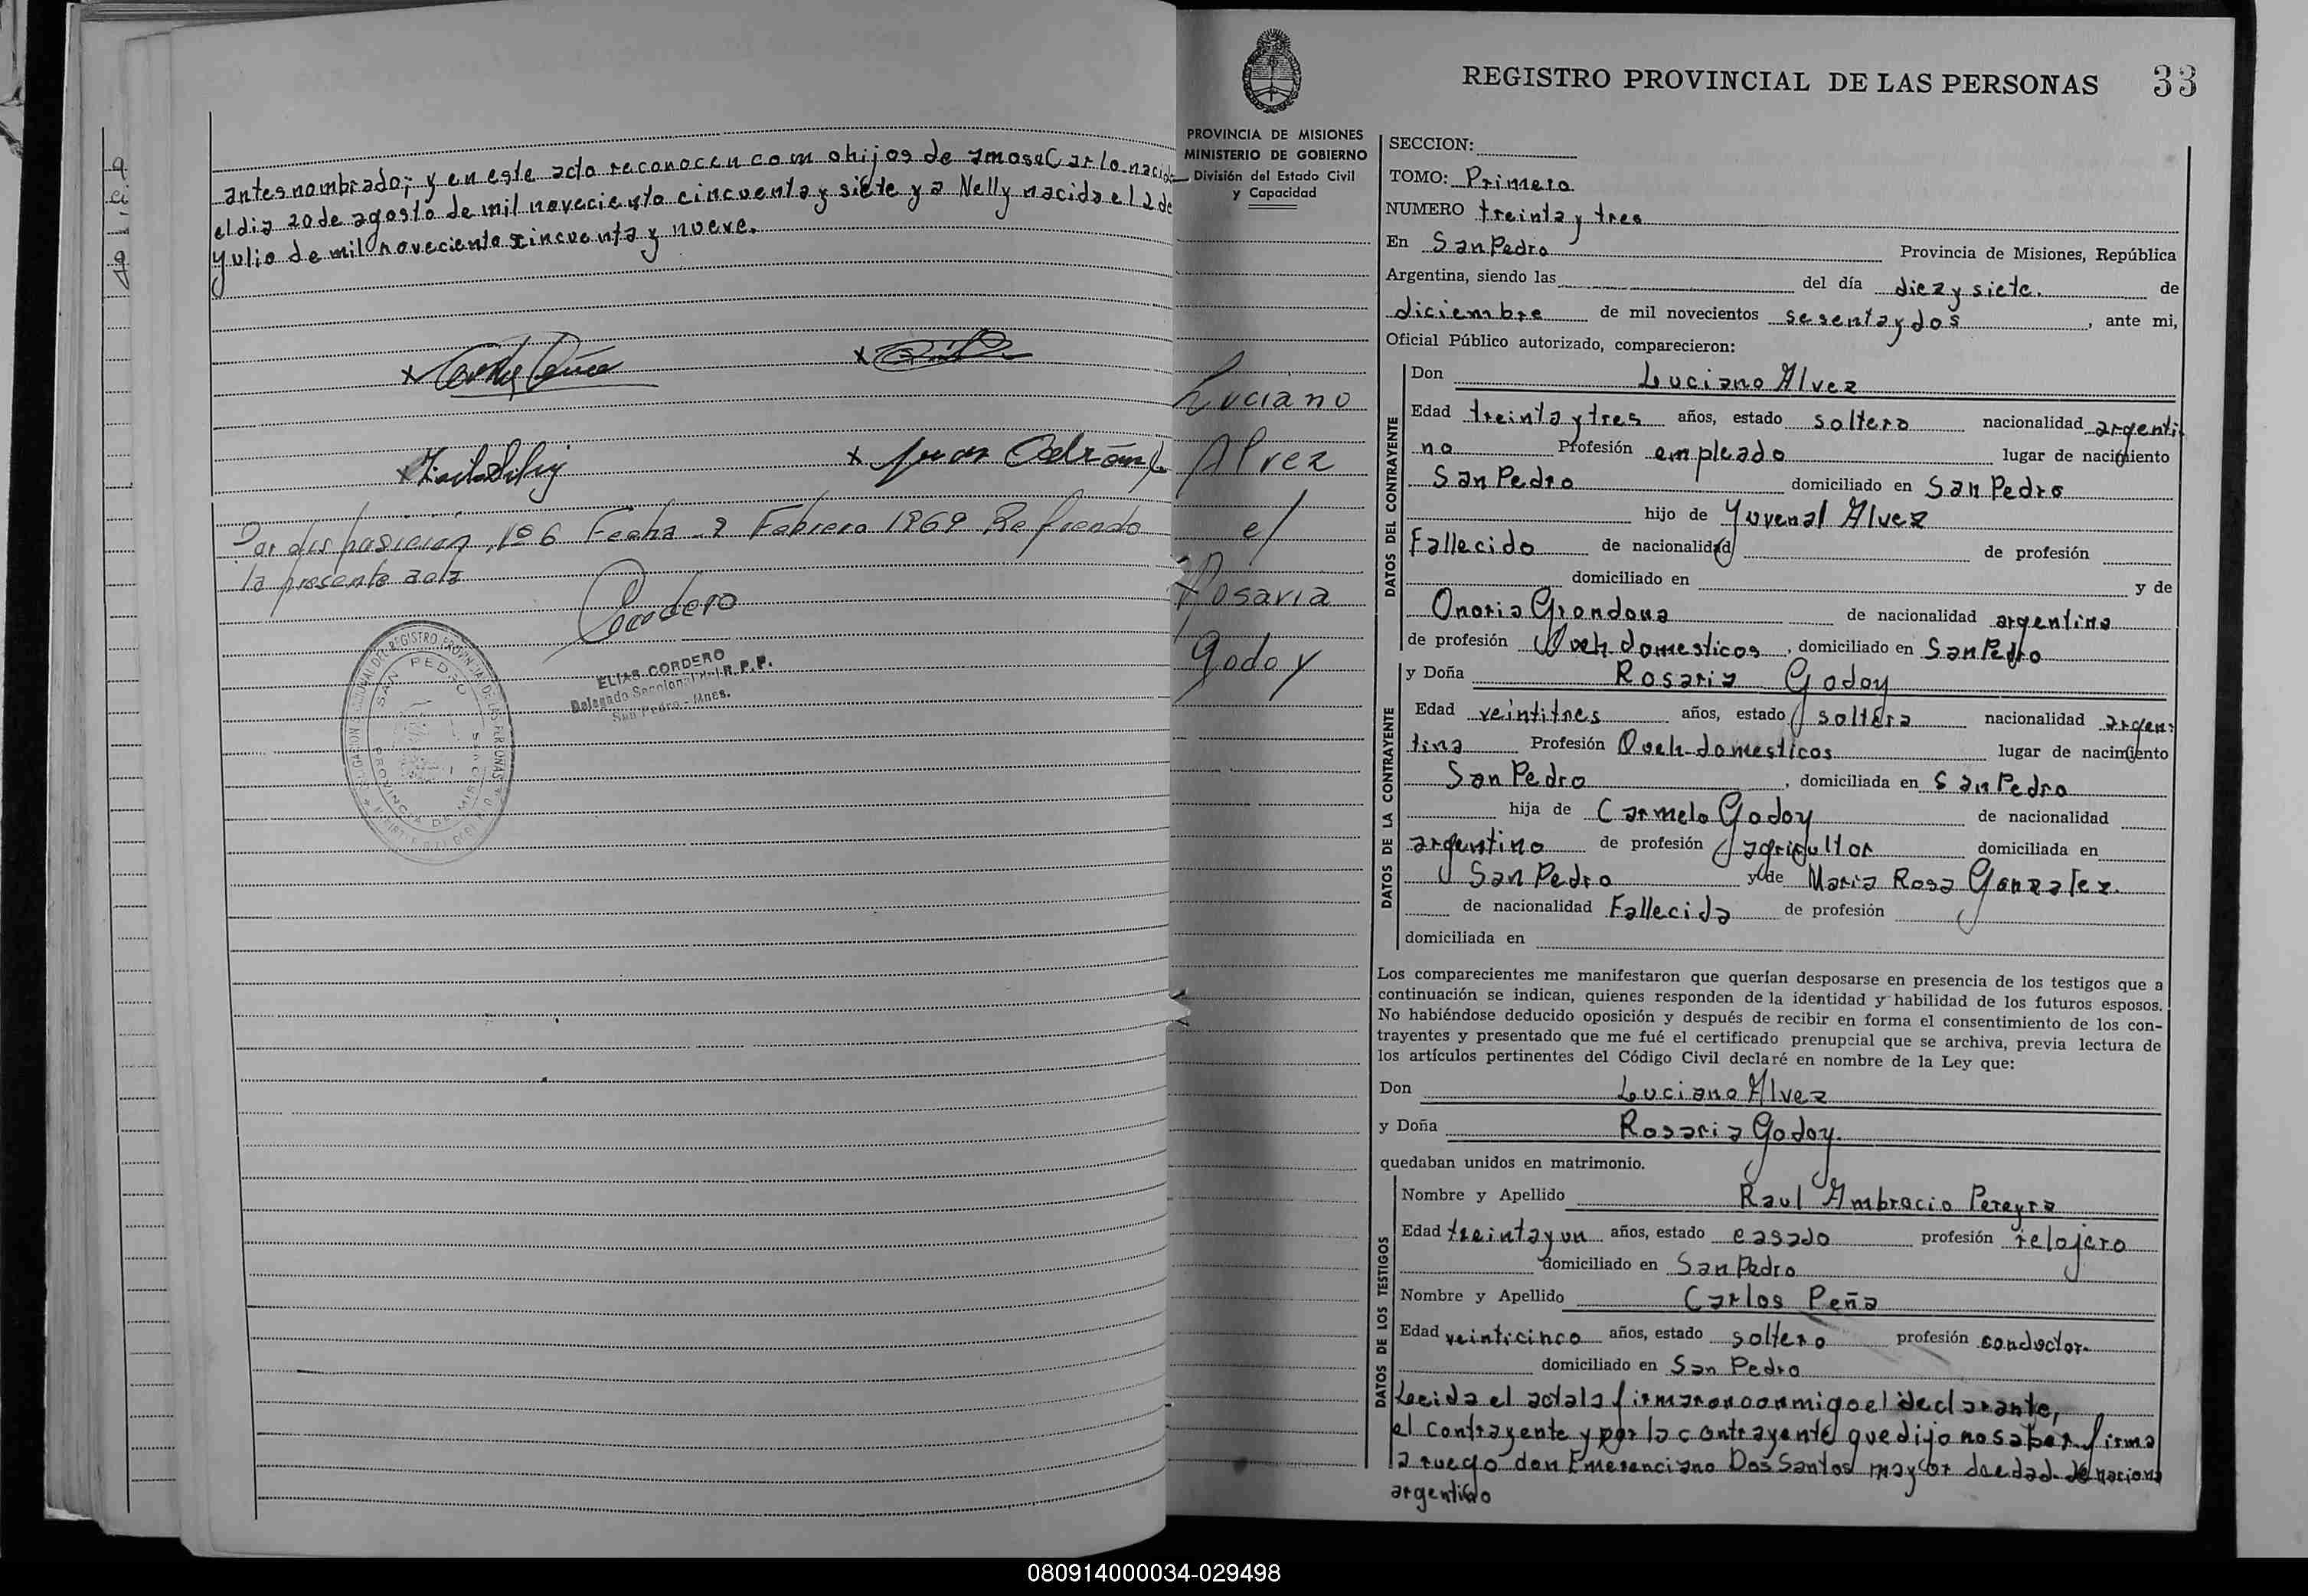 antes nombrado; y en este acto reconocen como hijos de ambos a Carlo nacido
el dia 20 de agosto de mil noveciento cincuenta y siete y a Nelly nacida el 2 de
yulio de mil noveciento cincuenta y nueve.
x
x
x
x Juan
Por disposición Nº 6 Fecha 2 Febrero 1969 Refrendo
la presente acta
Cordero
ELIAS CORDERO
Delegado Seccional del R.P.P.
San Pedro - Mnes.
SAN PEDRO
PROVINCIA DE MISIONES
33
REGISTRO PROVINCIAL DE LAS PERSONAS
PROVINCIA DE MISIONES
MINISTERIO DE GOBIERNO
División del Estado Civil
y Capacidad
Luciano
Alvez
y
Rosaria
Godoy
SECCION:
TOMO: Primero
NUMERO treinta y tres
En San Pedro Provincia de Misiones, República
Argentina, siendo las del día diez y siete. de
diciembre de mil novecientos sesenta y dos, ante mi,
Oficial Público autorizado, comparecieron:
DATOS DEL CONTRAYENTE
Don Luciano Alvez
Edad treinta y tres años, estado soltero nacionalidad argenti
no Profesión empleado lugar de nacimiento
San Pedro domiciliado en San Pedro
hijo de Yuvenal Alvez
Fallecido de nacionalidad de profesión
domiciliado en y de
Onoria Grondona de nacionalidad argentina
de profesión Queh domesticos, domiciliado en San Pedro
DATOS DE LA CONTRAYENTE
y Doña Rosaria Godoy
Edad veintitres años, estado soltera nacionalidad argen-
tina Profesión Queh-domesticos lugar de nacimiento
San Pedro, domiciliada en San Pedro
hija de Carmelo Godoy de nacionalidad
argentino de profesión agricultor domiciliada en
San Pedro y de Maria Rosa Gonzalez.
de nacionalidad Fallecida de profesión
domiciliada en
Los comparecientes me manifestaron que querían desposarse en presencia de los testigos que a
continuación se indican, quienes responden de la identidad y habilidad de los futuros esposos.
No habiéndose deducido oposición y después de recibir en forma el consentimiento de los con-
trayentes y presentado que me fué el certificado prenupcial que se archiva, previa lectura de
los artículos pertinentes del Código Civil declaré en nombre de la Ley que:
Don Luciano Alvez
y Doña Rosaria Godoy.
quedaban unidos en matrimonio.
DATOS DE LOS TESTIGOS
Nombre y Apellido Raul Ambrocio Pereyra
Edad treinta y un años, estado casado profesión relojero
domiciliado en San Pedro
Nombre y Apellido Carlos Peña
Edad veinticinco años, estado soltero profesión conductor.
domiciliado en San Pedro
Leeida el acta la firmaron conmigo el declarante,
el contrayente y por la contrayente que dijo no saber firma
a ruego don Emerenciano Dos Santos mayor de edad de naciona
argentino
080914000034-029498